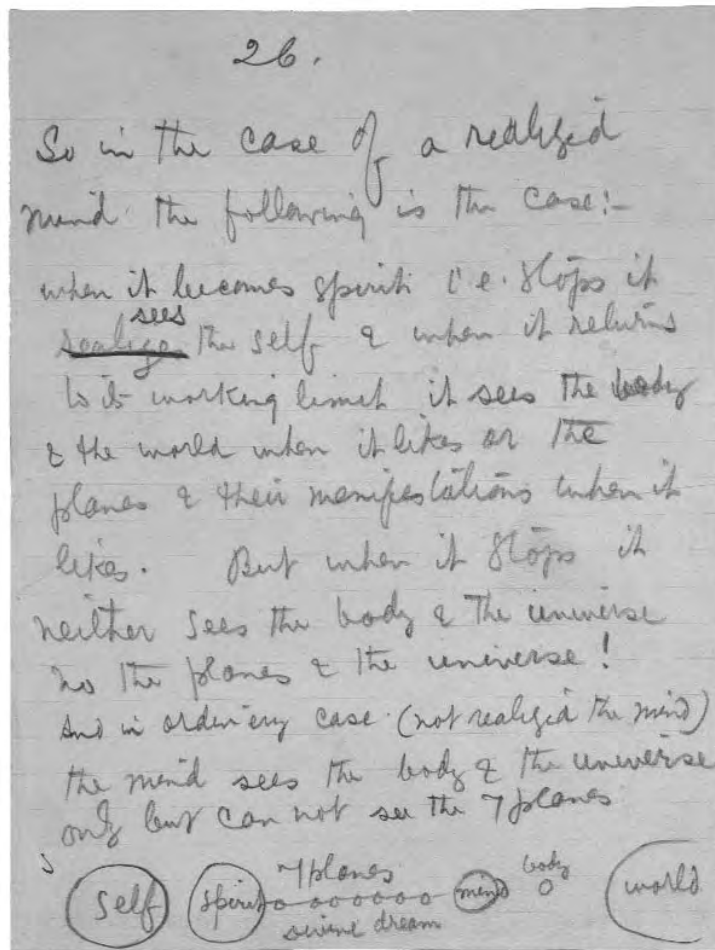 26.
So in the case of a realized
mind the following is the case:-
when it becomes spirit i.e. stops it
realize sees the self & when it returns
to its working limit it sees the body
& the world when it likes or the
planes & their manifestations when it
likes. But when it stops it
neither sees the body & the universe
no the planes & the universe!
And in ordinery case (not realized the mind)
the mind sees the body & the universe
only but can not see the 7 planes
self spirit 7 planes mind body world
divine dream